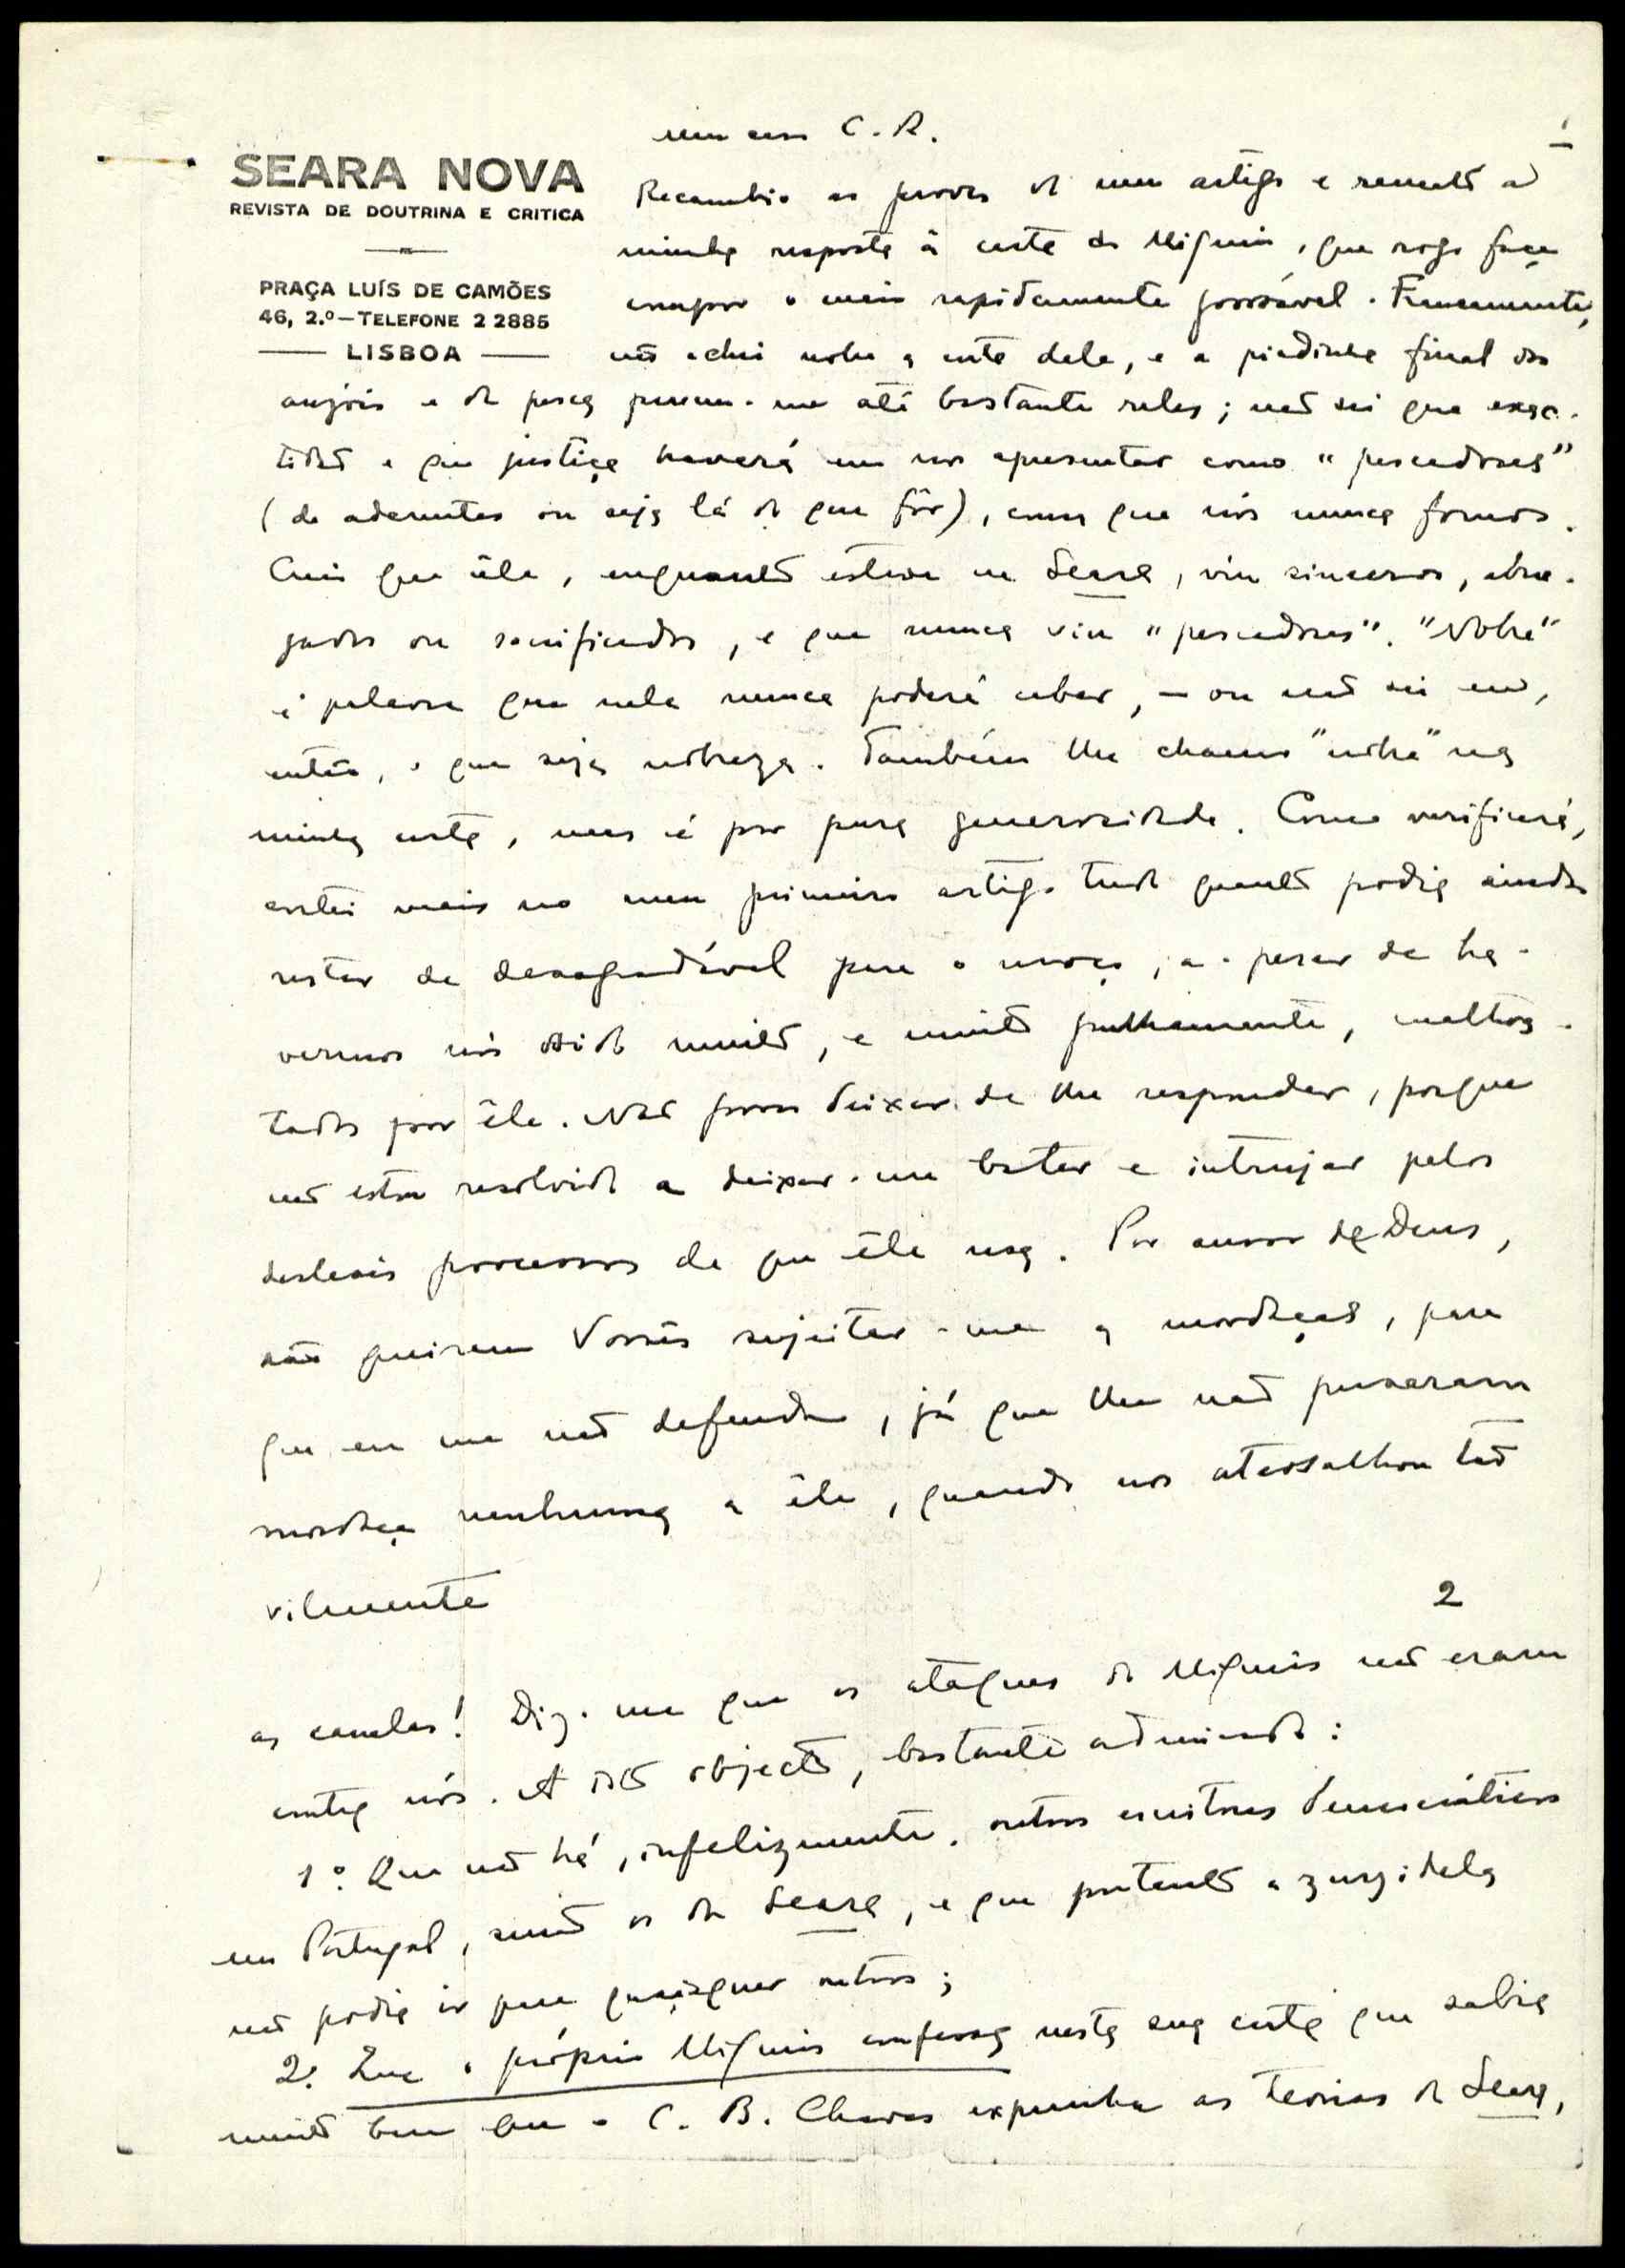 SEARA NOVA
REVISTA DE DOUTRINA E CRITICA
PRAÇA LUÍS DE CAMÕES
46, 2.º—TELEFONE 2 2885
LISBOA
1
meu caro C. R.
Recambio as provas do meu artigo e remeto a
minha resposta à carta do Miguéis, que rogo faça
compor o mais rapidamente possível. Francamente,
não achei nobre a carta dele, e a piadinha final dos
anzóis e da pesca parece-me até bastante reles; não sei que exac-
tidão e que justiça haverá em nos apresentar como "pescadores"
(de aderentes ou seja lá do que fôr), coisa que nós nunca fomos.
Creio que êle, enquanto esteve na Seara, viu sinceros, abne-
gados ou sacrificados, e que nunca viu "pescadores". "Nobre"
é palavra que nela nunca poderá caber, — ou não sei eu,
então, o que seja nobreza. Também lhe chamo "nobre" na
minha carta, mas é por pura generosidade. Como verificará,
cortei mais no meu primeiro artigo tudo quanto podia ainda
restar de desagradável para o moço, a-pesar de ha-
vermos nós sido muito, e muito pulhamente, maltra-
tados por êle. Não posso deixar de lhe responder, porque
não estou resolvido a deixar-me bater e intrujar pelos
desleais processos de que êle usa. Por amor de Deus,
não queiram Vossês sujeitar-me a mordaças, para
que eu me não defenda, já que lhe não puseram
mordaça nenhuma a êle, quando nos atassalhou tão
vilmente
2
as canelas! Diz-me que os ataques do Miguéis não eram
contra nós. A isto objecto, bastante admirado:
1.º Que não há, infelizmente, outros escritores democráticos
em Portugal, senão os da Seara, e que portanto a zurzidela
não podia ir para quaisquer outros;
2.º Que o próprio Miguéis confessa nesta sua carta que sabia
muito bem que o C. B. Chaves expunha as teorias da Seara,